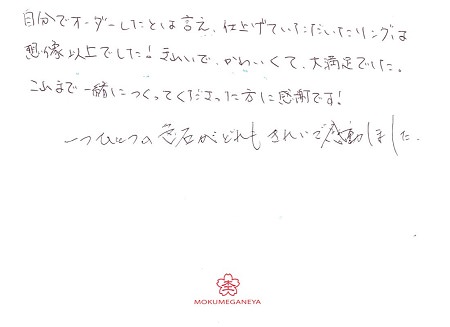 自分でオーダーしたとは言え、仕上げていただいたリングは
想像以上でした！きれいで、かわいくて、大満足でした。
これまで一緒につくってくださった方に感謝です！
一つひとつの色石がどれもきれいで感動しました。
MOKUMEGANEYA